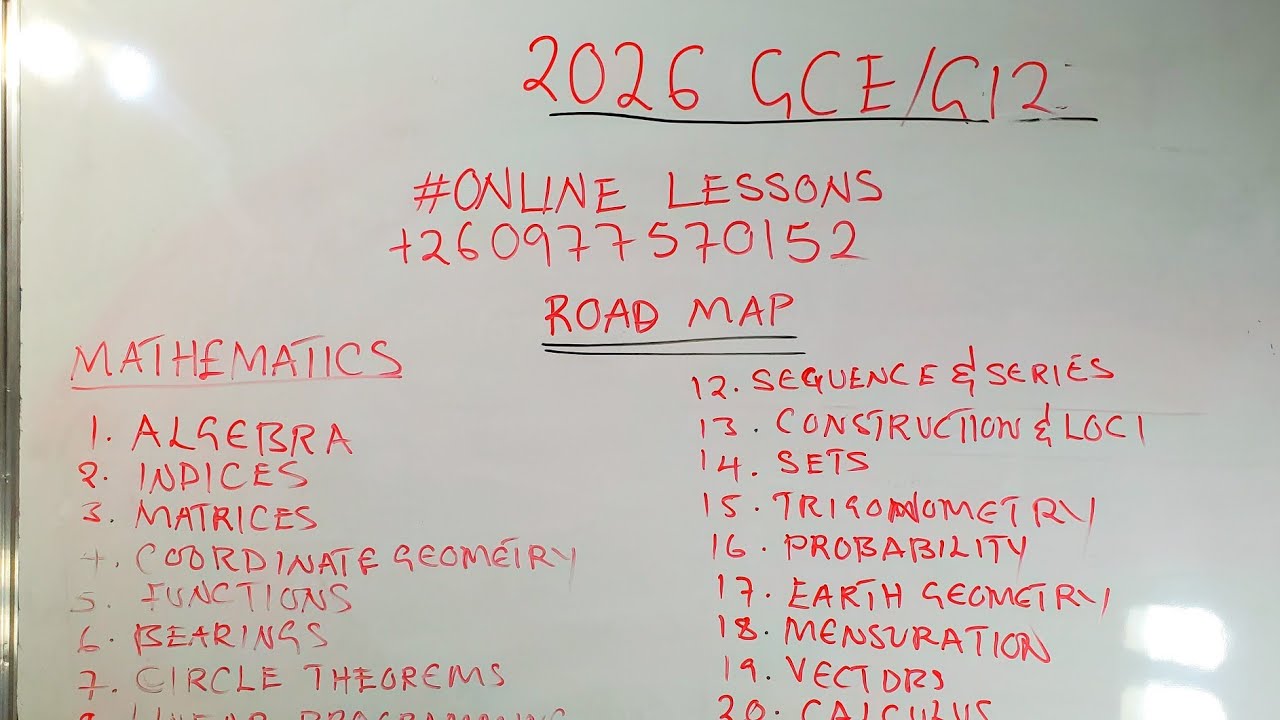 2026 GCE/G12
#ONLINE LESSONS
+260977570152
ROAD MAP
MATHEMATICS
1. ALGEBRA
2. INDICES
3. MATRICES
4. COORDINATE GEOMETRY
5. FUNCTIONS
6. BEARINGS
7. CIRCLE THEOREMS
8. LINEAR PROGRAMMING
12. SEQUENCE & SERIES
13. CONSTRUCTION & LOCI
14. SETS
15. TRIGONOMETRY
16. PROBABILITY
17. EARTH GEOMETRY
18. MENSURATION
19. VECTORS
20. CALCULUS